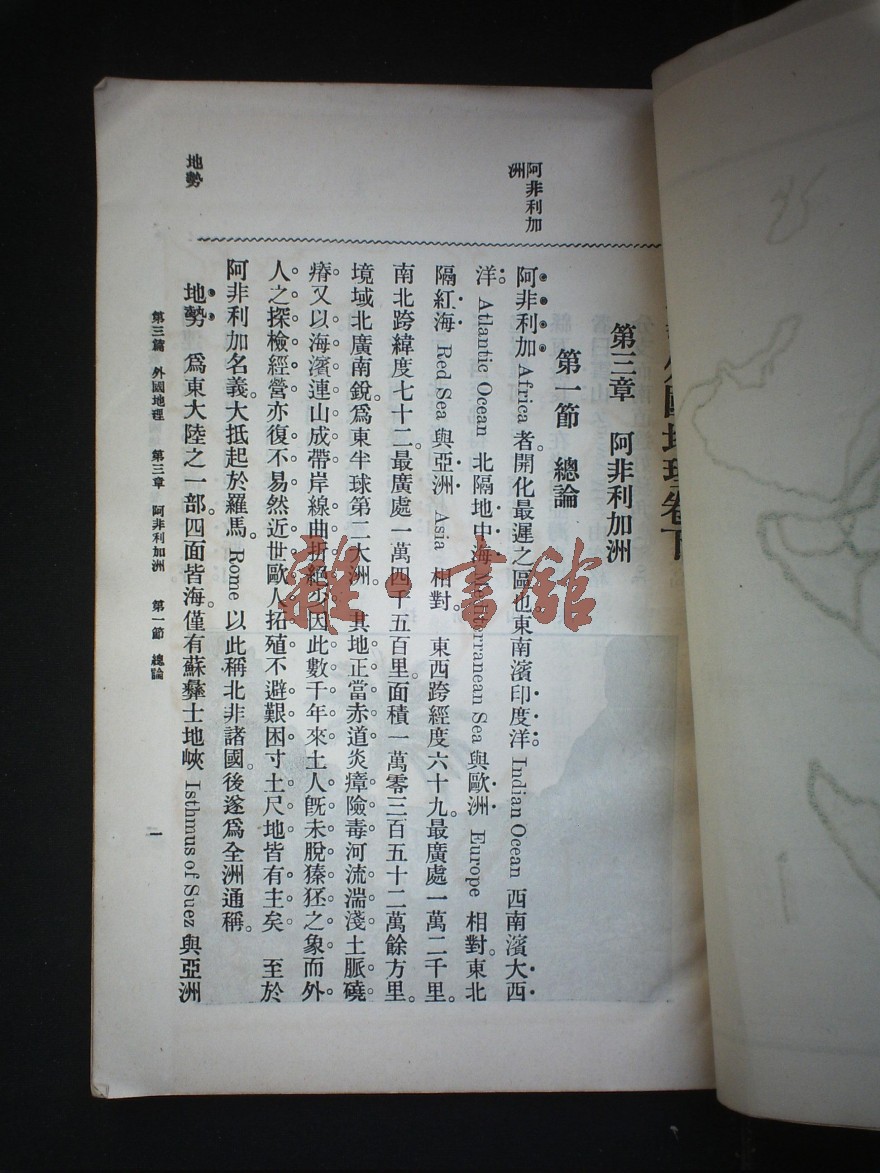 外國地理卷下
第三章 阿非利加洲
第一節 總論
阿非利加洲
阿非利加 Africa 者開化最遲之區也。東南濱印度洋 Indian Ocean 西南濱大西
洋。Atlantic Ocean 北隔地中海 Mediterranean Sea 與歐洲 Europe 相對。東北
隔紅海 Red Sea 與亞洲 Asia 相對。 東西跨經度六十九。最廣處一萬二千里。
南北跨緯度七十二。最廣處一萬四千五百里。面積一萬零三百五十二萬餘方里。
境域北廣南銳。爲東半球第二大洲。 其地正當赤道炎瘴險毒河流湍淺土脈磽
瘠又以海濱連山成帶岸線曲折絕少因此數千年來土人旣未脫獉狉之象而外
人之探檢經營亦復不易然近世歐人拓殖不避艱困寸土尺地皆有主矣 至於
阿非利加名義。大抵起於羅馬。Rome 以此稱北非諸國。後遂爲全洲通稱。
地勢
地勢 爲東大陸之一部。四面皆海。僅有蘇彝士地峽 Isthmus of Suez 與亞洲
第三篇 外國地理 第三章 阿非利加洲 第一節 總論 一
雜·書館